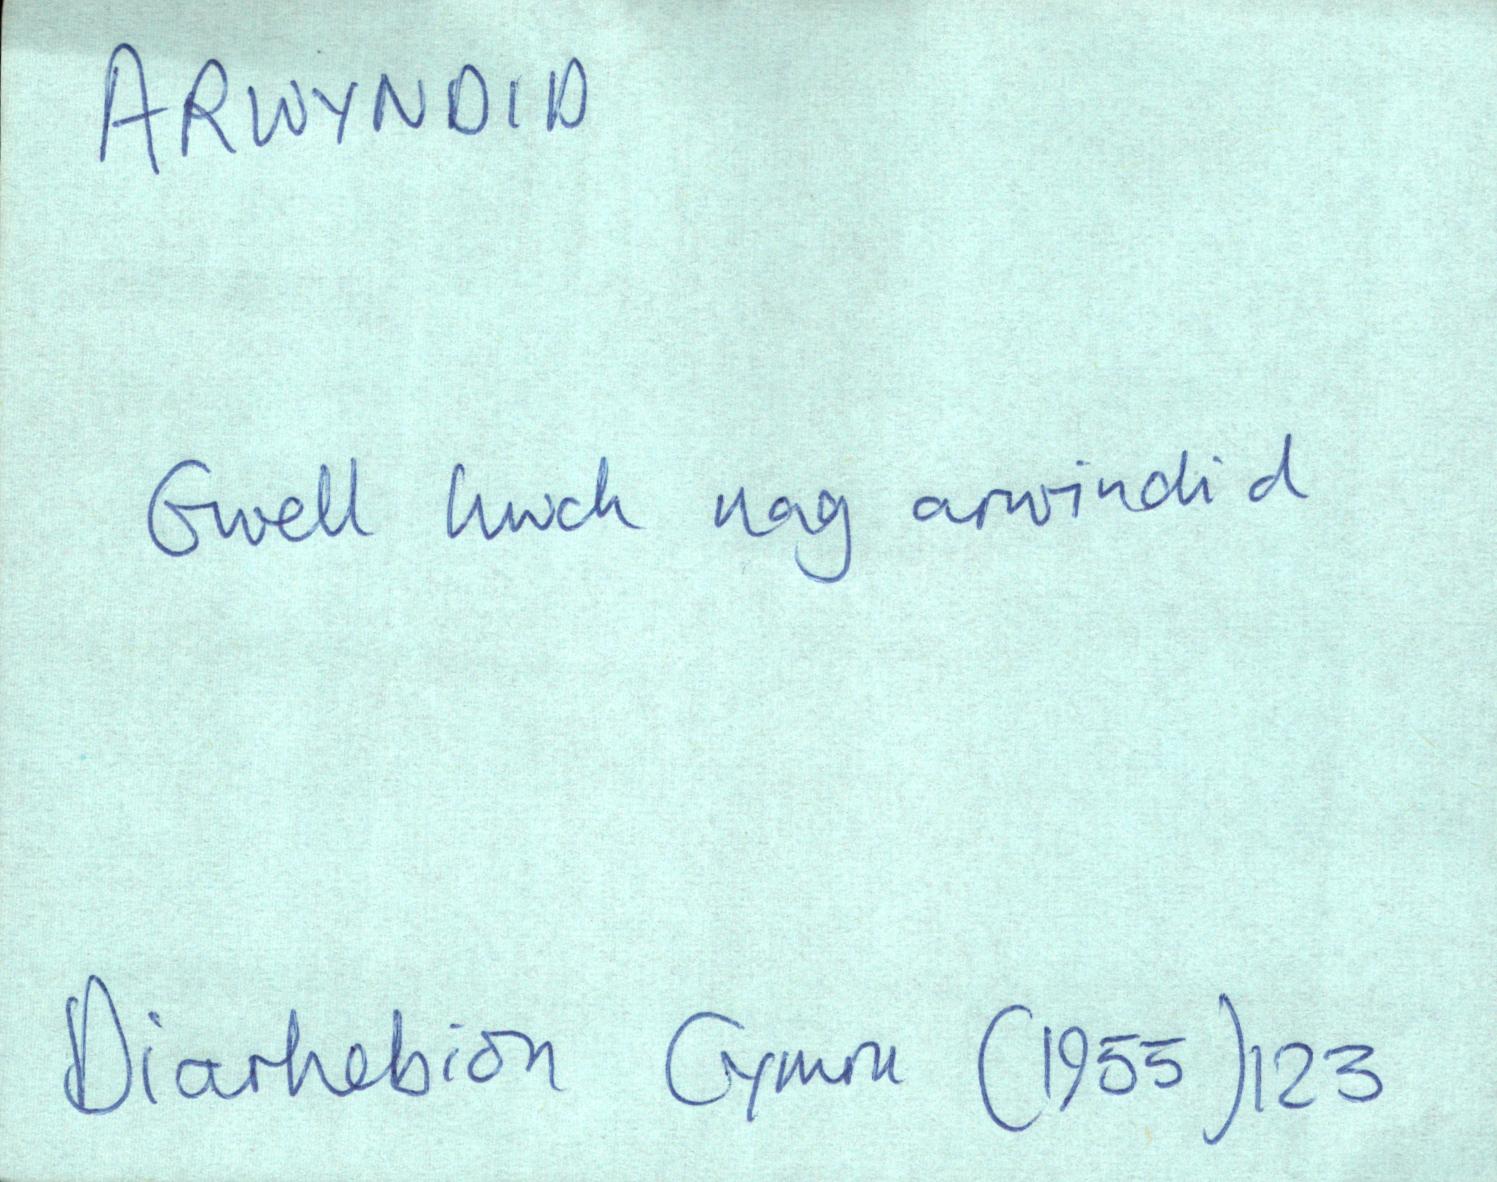 ARWYNDID
Gwell hwch nag arwindid
Diarhebion Cymru (1955) 123